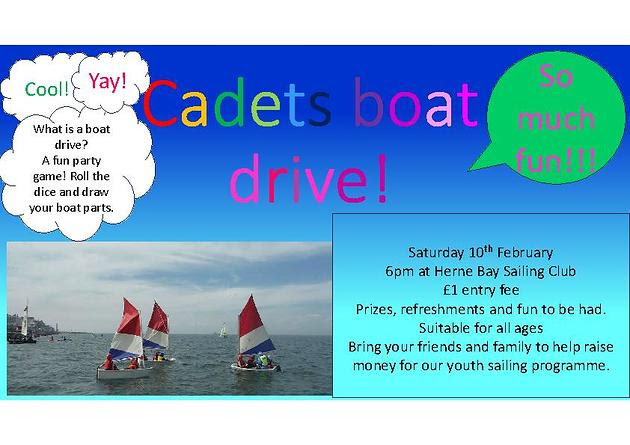 Cool!
Yay!
Cadets boat
drive!
So
much
fun!!!
What is a boat
drive?
A fun party
game! Roll the
dice and draw
your boat parts.
Saturday 10th February
6pm at Herne Bay Sailing Club
£1 entry fee
Prizes, refreshments and fun to be had.
Suitable for all ages
Bring your friends and family to help raise
money for our youth sailing programme.